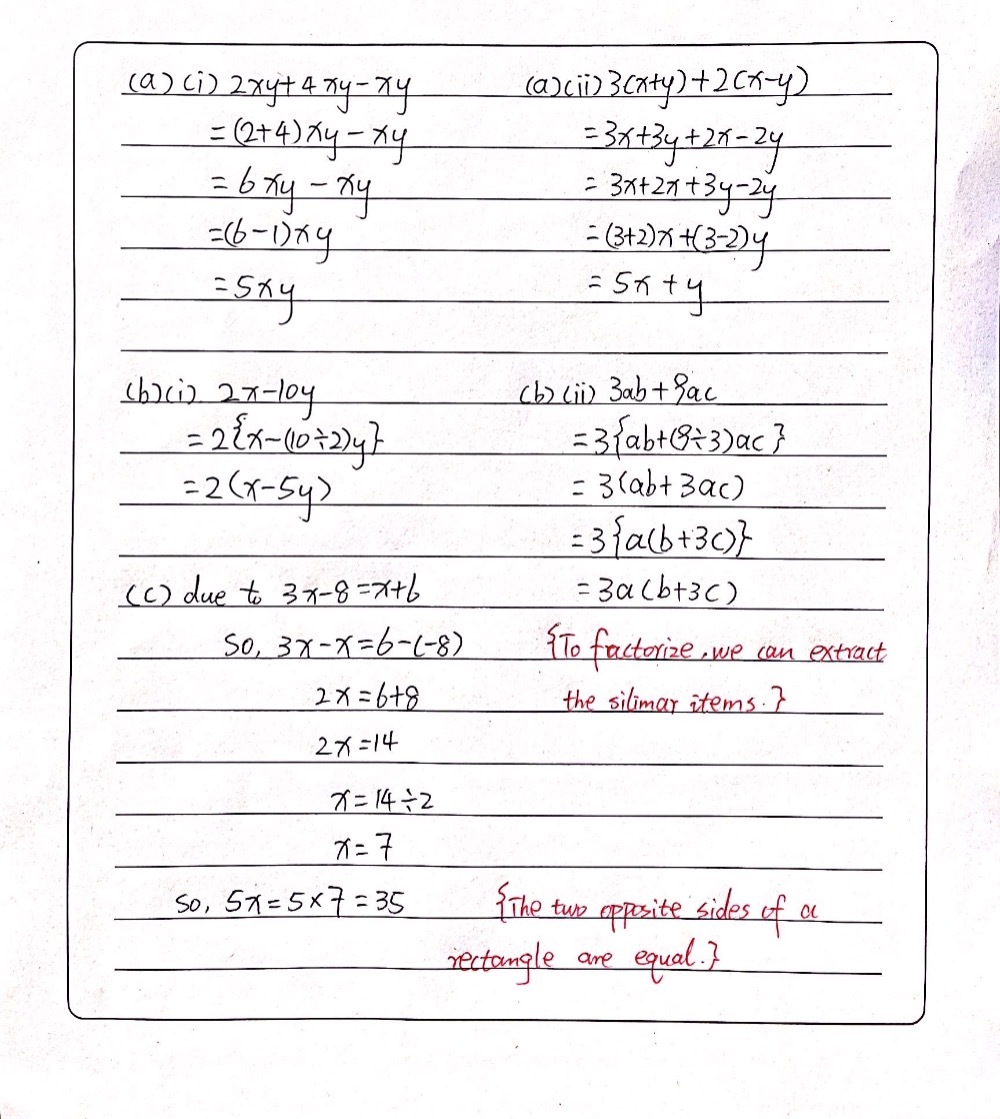 (a) (i) 2xy+4xy-xy
=(2+4)xy-xy
=6xy-xy
=(6-1)xy
=5xy
(a)(ii) 3(x+y)+2(x-y)
=3x+3y+2x-2y
=3x+2x+3y-2y
=(3+2)x+(3-2)y
=5x+y
(b)(i) 2x-10y
=2{x-(10÷2)y}
=2(x-5y)
(b)(ii) 3ab+9ac
=3{ab+(9÷3)ac}
=3(ab+3ac)
=3{a(b+3c)}
=3a(b+3c)
{To factorize, we can extract
the silimar items.}
(c) due to 3x-8=x+6
So, 3x-x=6-(-8)
2x=6+8
2x=14
x=14÷2
x=7
So, 5x=5×7=35
{The two opposite sides of a
rectangle are equal.}